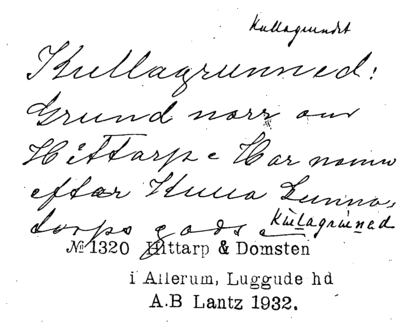 Kullagrundet
Kullagrunned:
Grund norr om
Hittarp. Har namn
efter Kulla Gunna-
torps gods.
Kullagrùned
№ 1320 Hittarp & Domsten
i Allerum, Luggude hd
A.B Lantz 1932.